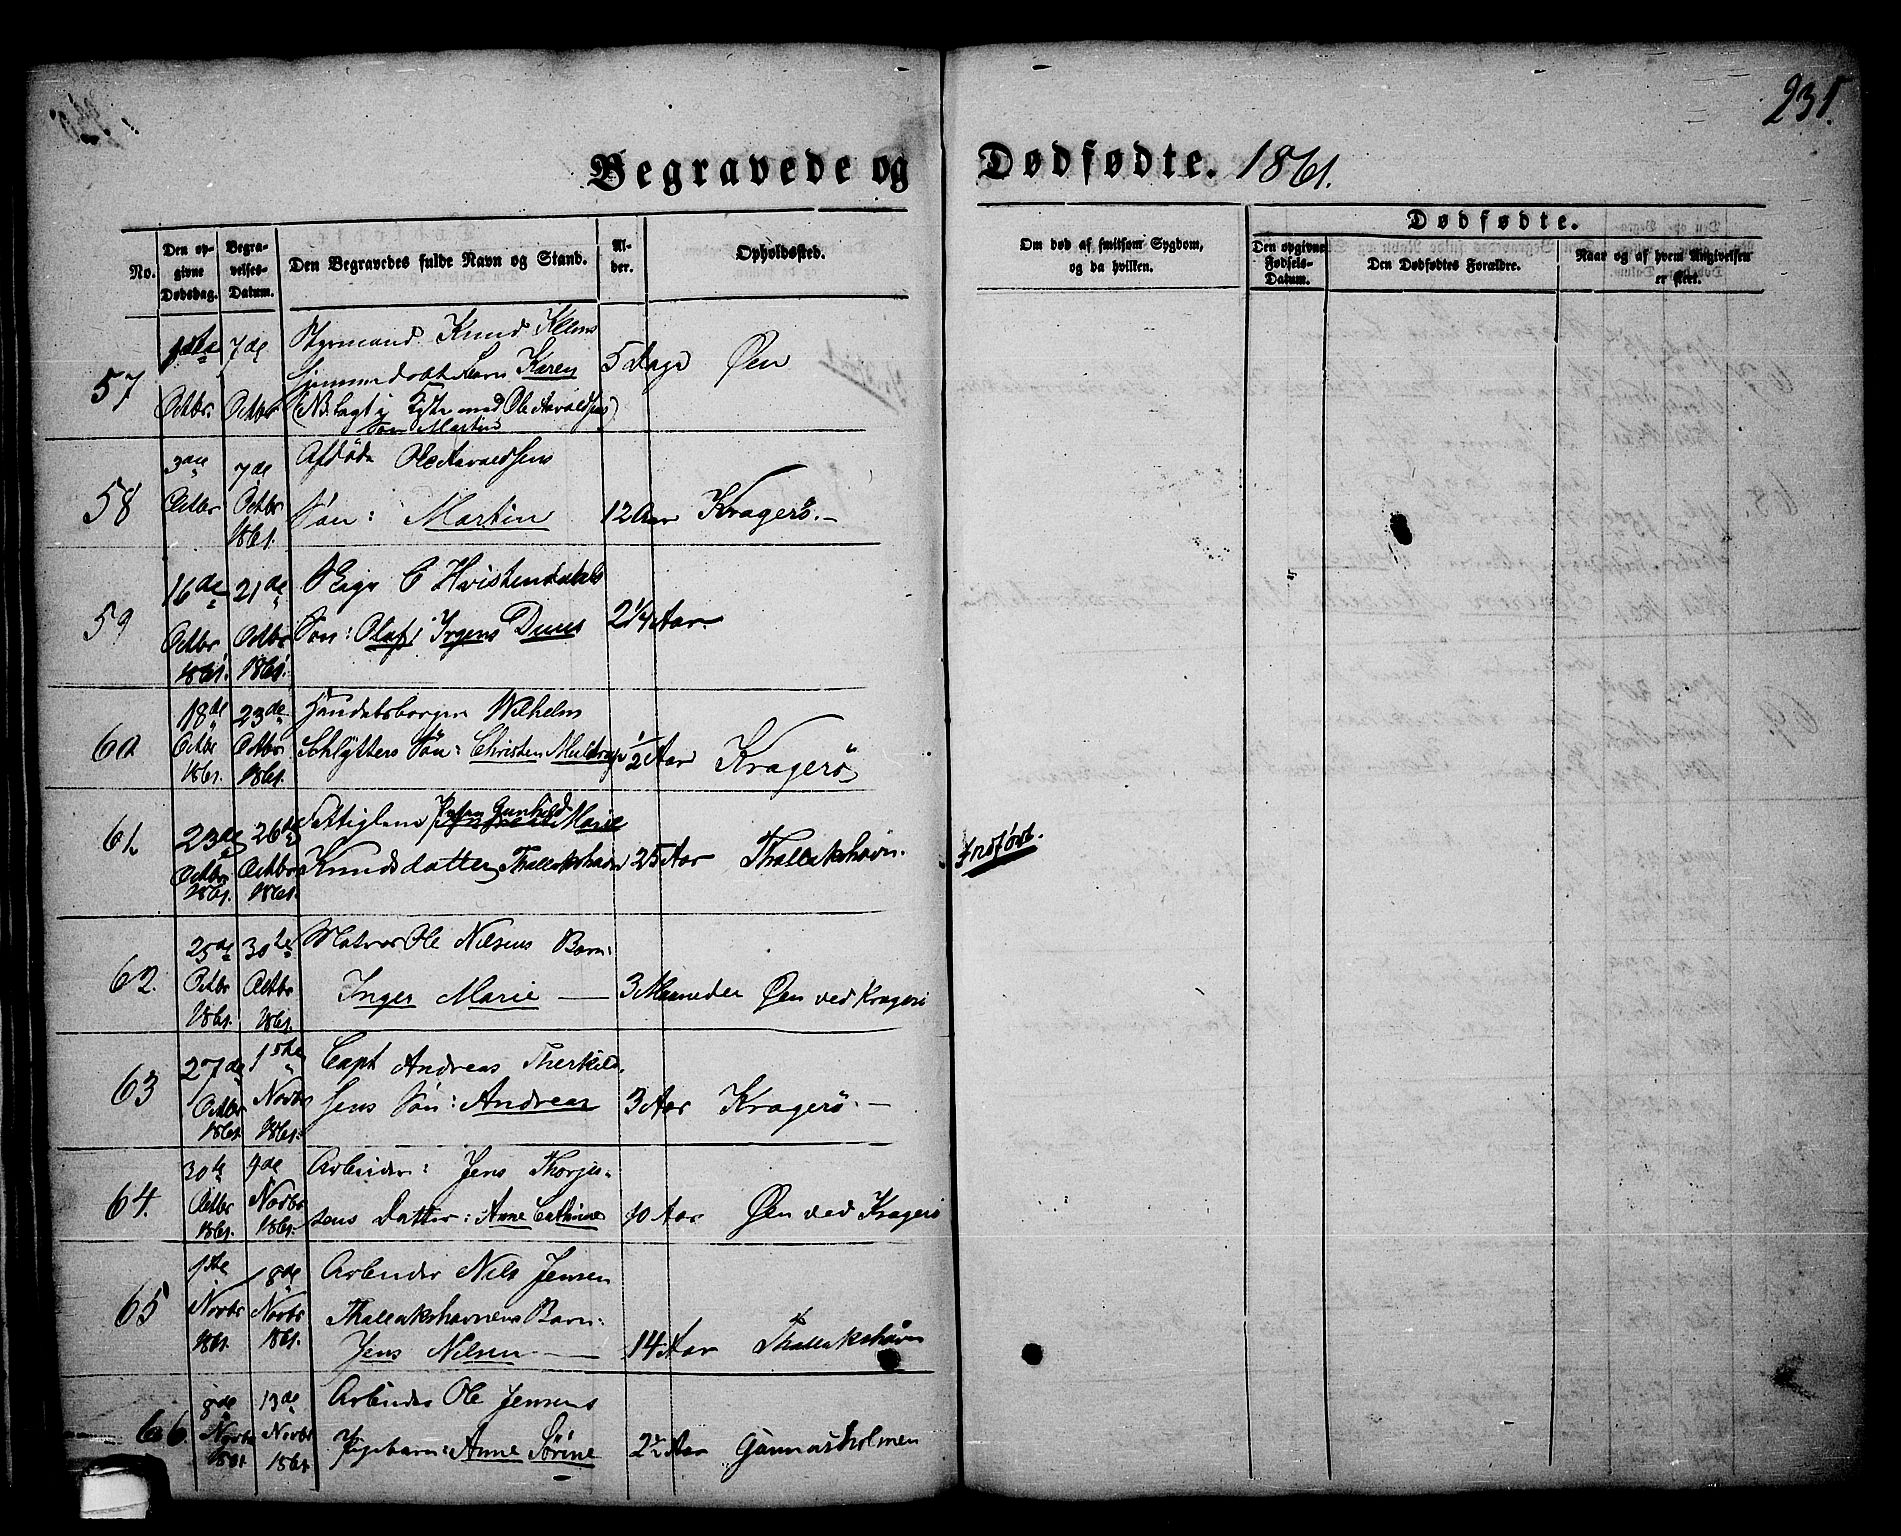 231.
Begravede og Dødfødte. 1861.
No.
Den opgivne Dødsdag.
Begravelses-Datum.
Den Begravedes fulde Navn og Stand.
Alder.
Opholdssted.
Om død af smitsom Sygdom, og da hvilken.
Dødfødte.
Den opgivne Fødsels-Datum.
Den Dødfødtes Forældre.
Naar og af hvem Angivelsen er skeet.
57
1ste Octbr
7de Octbr
Styrmand Knud Klem
Barn Karen
(NB lagt i Kiste med Ole Aavaldsens
Søn Martin)
5 Dage
Øen
58
3die Octbr
7de Octbr 1861.
Afdöde Ole Aavaldsens
Søn: Martin
12 Aar
Kragerö.-
59
16de Octbr 1861.
21de Octbr 1861.
C Hvistendahls
Søn: Olaf Irgens Dues
2 1/4 Aar.
60
18de Octbr 1861.
23de Octbr 1861.
Handelsborger Wilhelm
Schlytters Søn: Christen Muldrup
1/2 Aar
Kragerö
61.
23de Octbr 1861.
26de Octbr 1861.
Fattiglem Gunhild Marie
Knudsdatter Thallakshavn
25 Aar
Thallakshavn.
Indført.
62.
25de Octbr 1861.
30te Octbr 1861.
Matros Ole Nilsens Barn:
Inger Marie —
3 Maaneder
Øen ved Kragerö
63
27de Octbr 1861.
1ste Novbr 1861.
Capt Andreas Therkild-
sens Søn: Andreas
3 Aar
Kragerö.-
64.
30te Octbr 1861.
4de Novbr 1861.
Arbeider: Jens Thorjus-
sens Datter: Anne Cathrine
10 Aar
Øen ved Kragerö
65
1ste Novbr 1861.
8de Novbr 1861.
Arbeider Nils Jensen
Thallakshavnens Barn:
Jens Nilsen —
14 Aar
Thallakshavn
66.
8de Novbr 1861
13de Novbr 1861.
Arbeider Ole Jensens
Pigebarn: Anne Sörine
2 1/2 Aar
Gunnarsholmen